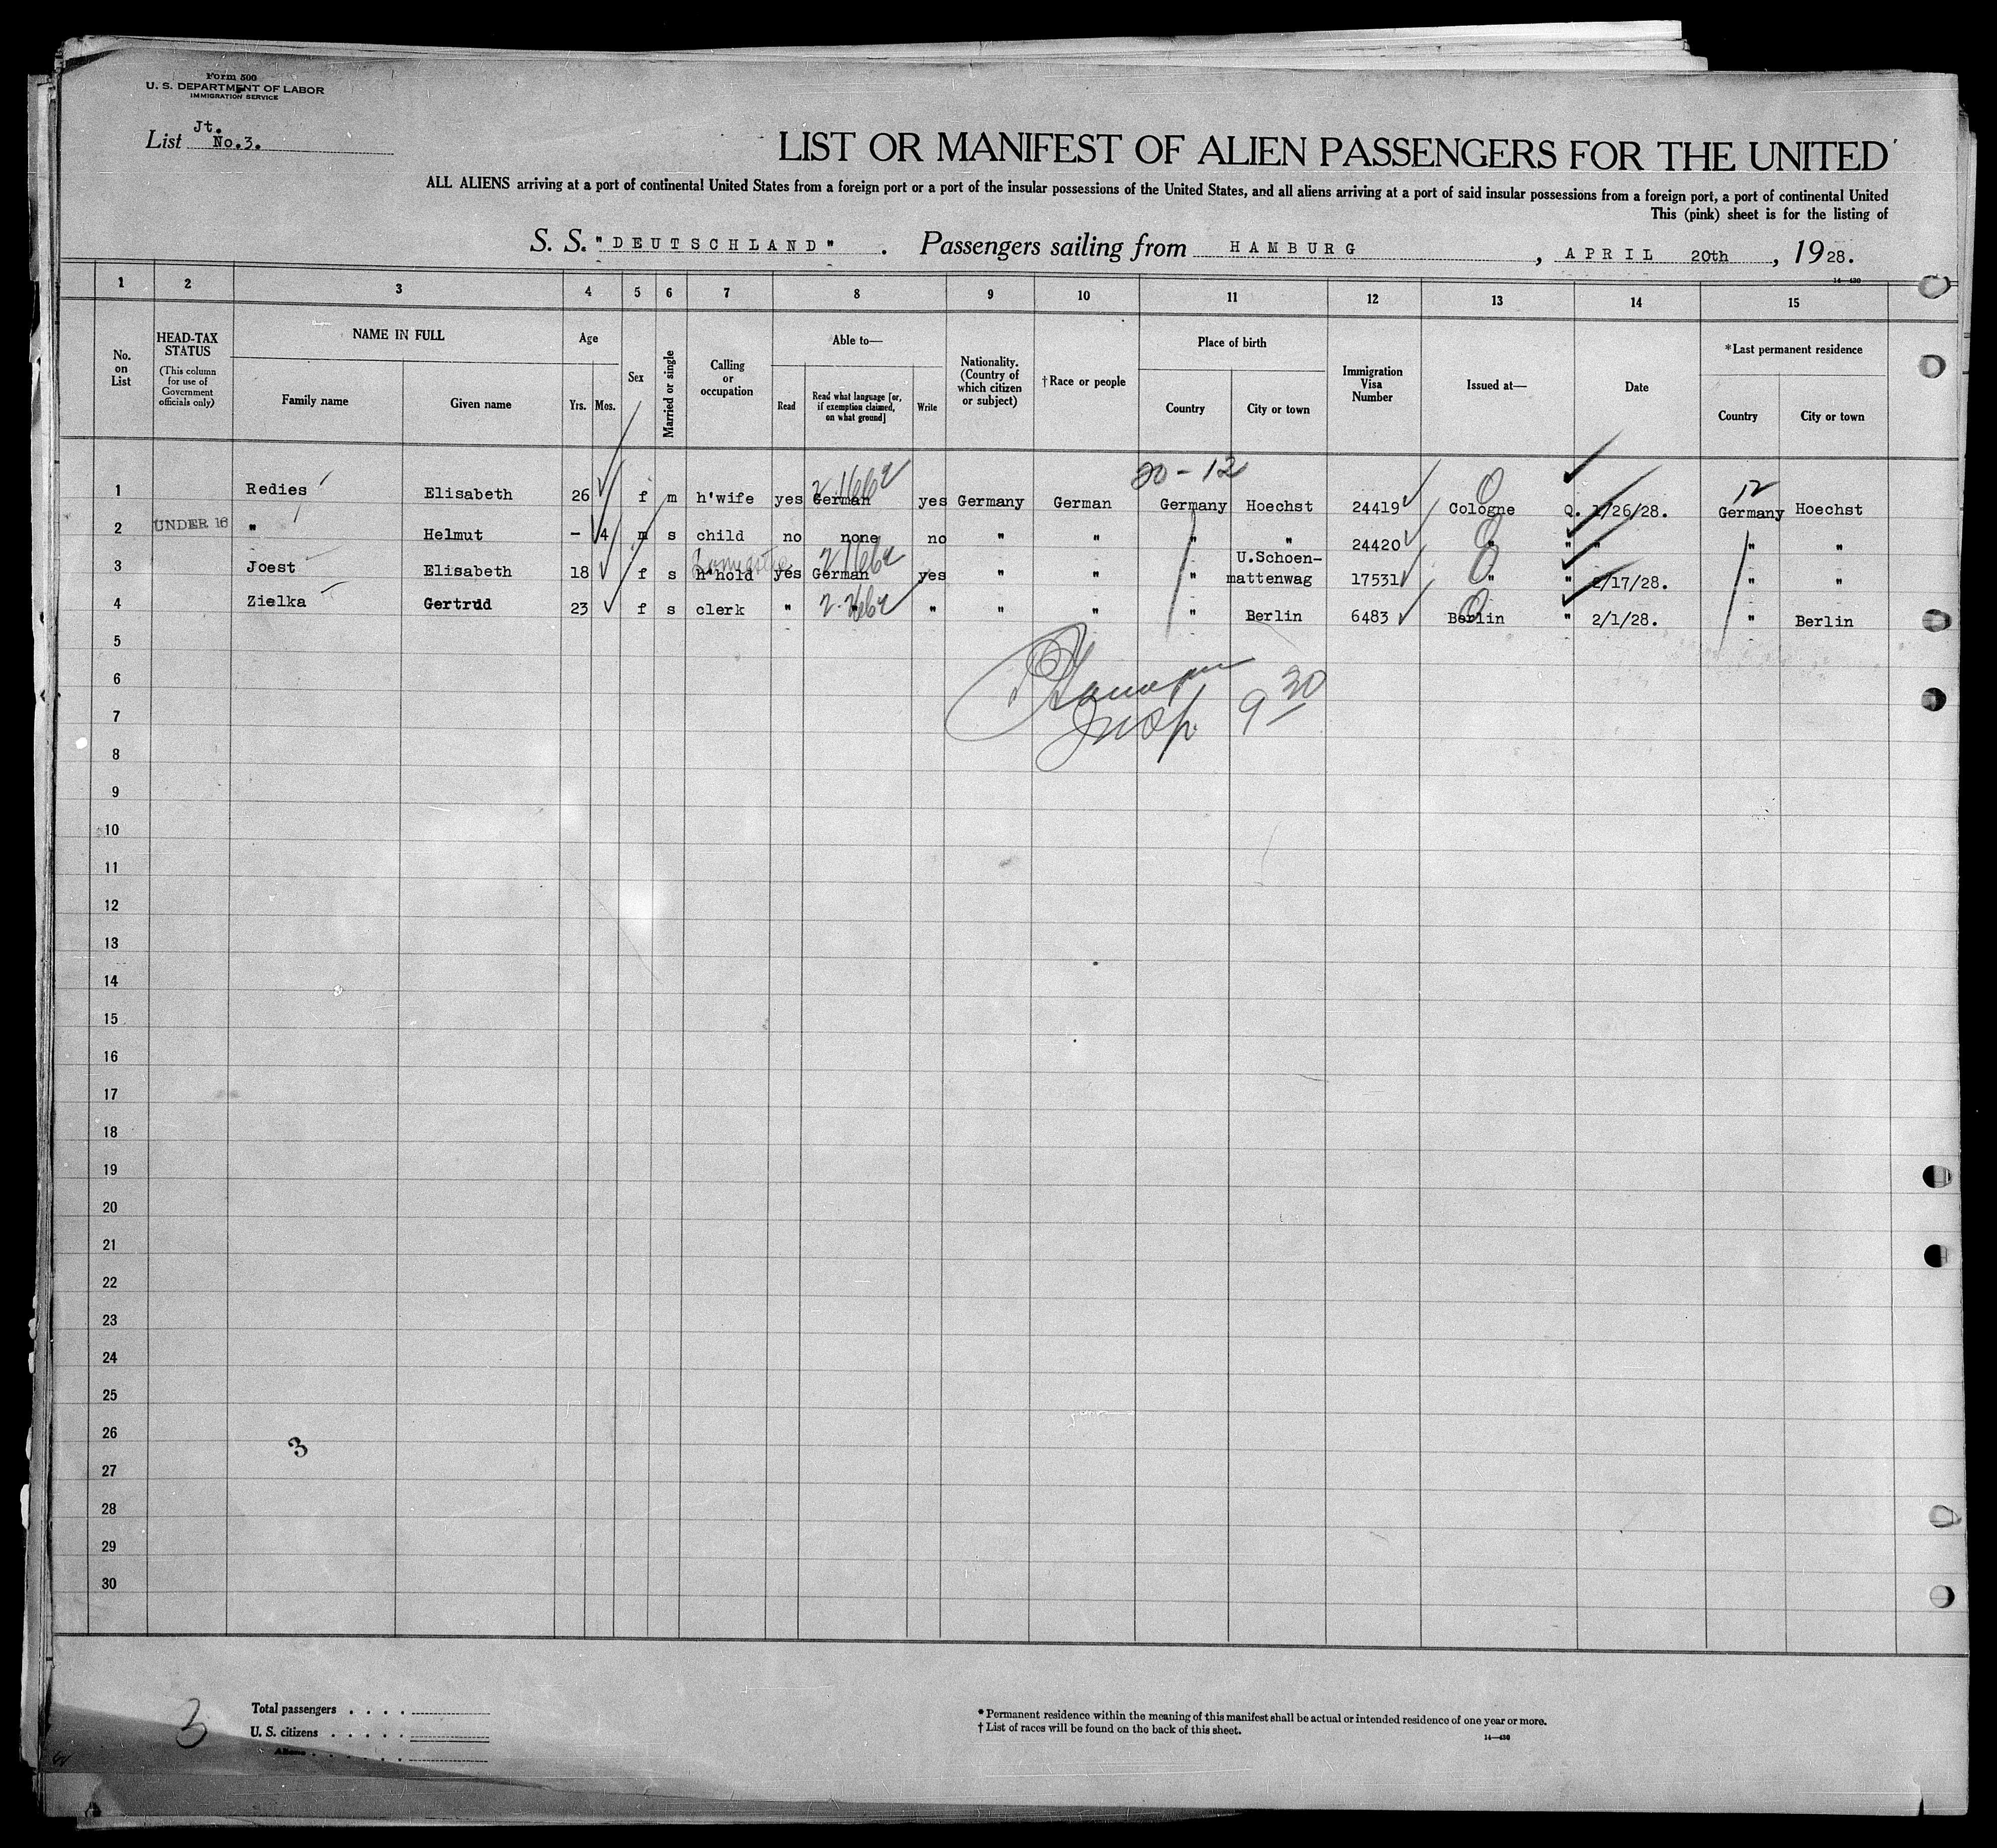 Form 500
U. S. DEPARTMENT OF LABOR
IMMIGRATION SERVICE
List Jt. No.3.
LIST OR MANIFEST OF ALIEN PASSENGERS FOR THE UNITED
ALL ALIENS arriving at a port of continental United States from a foreign port or a port of the insular possessions of the United States, and all aliens arriving at a port of said insular possessions from a foreign port, a port of continental United
This (pink) sheet is for the listing of
S. S. "DEUTSCHLAND" . Passengers sailing from HAMBURG , APRIL 20th , 1928.
14—430
1 2 3 4 5 6 7 8 9 10 11 12 13 14 15
No. on List
HEAD-TAX STATUS
(This column for use of Government officials only)
NAME IN FULL
Family name Given name
Age
Yrs. Mos.
Sex
Married or single
Calling or occupation
Able to—
Read
Read what language [or, if exemption claimed, on what ground]
Write
Nationality. (Country of which citizen or subject)
†Race or people
Place of birth
Country City or town
Immigration Visa Number
Issued at—
Date
*Last permanent residence
Country City or town
20-12
12
1 Redies Elisabeth 26 f m h'wife yes German yes Germany German Germany Hoechst 24419 Cologne Q. 1/26/28. Germany Hoechst
2 UNDER 16 " Helmut - 4 m s child no none no " " " " 24420 " " " " "
3 Joest Elisabeth 18 f s h'hold yes German yes " " " U.Schoen-
mattenwag 17531 " " 2/17/28. " "
Domestic
4 Zielka Gertrud 23 f s clerk " " " " " " Berlin 6483 Berlin " 2/1/28. " Berlin
5
6
Insp. 9 30
7
8
9
10
11
12
13
14
15
16
17
18
19
20
21
22
23
24
25
26
3
27
28
29
30
3
Total passengers . . . .
U. S. citizens . . . . .
Aliens . . . . . .
* Permanent residence within the meaning of this manifest shall be actual or intended residence of one year or more.
† List of races will be found on the back of this sheet.
14—430